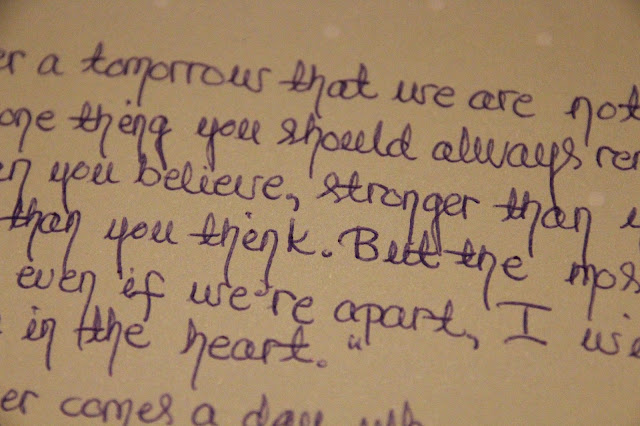 er a tomorrow that we are not
one thing you should always rem
en you believe, stronger than y
than you think. But the mos
even if we're apart, I wi
in the heart."
er comes a day